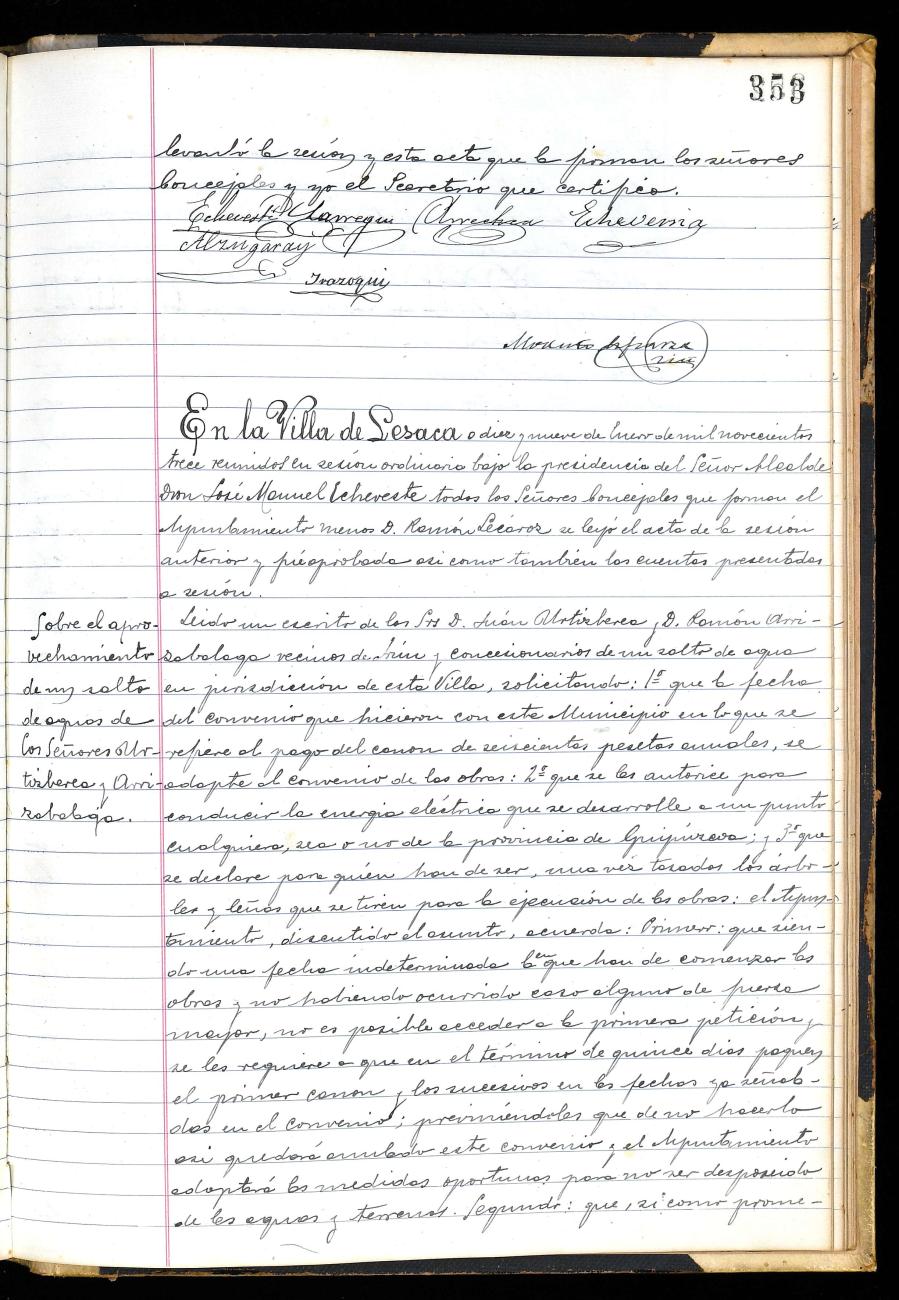 353
levantó la sesión y esta acta que la firman los señores
Concejales y yo el Secretario que certifico.
Echeveste Yarregui Arrechea Echeverria
Alzugaray
Irazoqui
Esparza
En la Villa de Lesaca a diez y nueve de Enero de mil novecientos
trece reunidos en sesión ordinaria bajo la presidencia del Señor Alcalde
Don José Manuel Echeveste todos los Señores Concejales que forman el
Ayuntamiento menos D. Ramón Lécaroz se leyó el acta de la sesión
anterior y fué aprobada asi como tambien las cuentas presentadas
a sesión.
Sobre el apro-
vechamiento
de un salto
de aguas de
los Señores Ur-
tizberea y Arri-
zabalaga.
Leido un escrito de los Srs D. Juán Urtizberea y D. Ramón Arri-
zabalaga vecinos de Irún y concesionarios de un salto de agua
en jurisdicción de esta Villa, solicitando: 1º que la fecha
del convenio que hicieron con este Municipio en lo que se
refiere al pago del canon de seiscientas pesetas anuales, se
adapte al convenio de las obras: 2º que se les autorice para
conducir la energia eléctrica que se desarrolle a un punto
cualquiera, sea o no de la provincia de Guipúzcoa; y 3º que
se declare para quién han de ser, una vez tasados los árbo-
les y leñas que se tiren para la ejecución de las obras: el Ayun-
tamiento, discutido el asunto, acuerda: Primero: que sien-
do una fecha indeterminada la en que han de comenzar las
obras y no habiendo ocurrido caso alguno de fuerza
mayor, no es posible acceder a la primera petición y
se les requiere a que en el término de quince dias paguen
el primer canon y los sucesivos en las fechas ya señala-
das en el convenio; previniéndoles que de no hacerlo
asi quedará anulado este convenio y el Ayuntamiento
adoptará las medidas oportunas para no ser desposeido
de las aguas y terrenos. Segundo: que, si como prome-